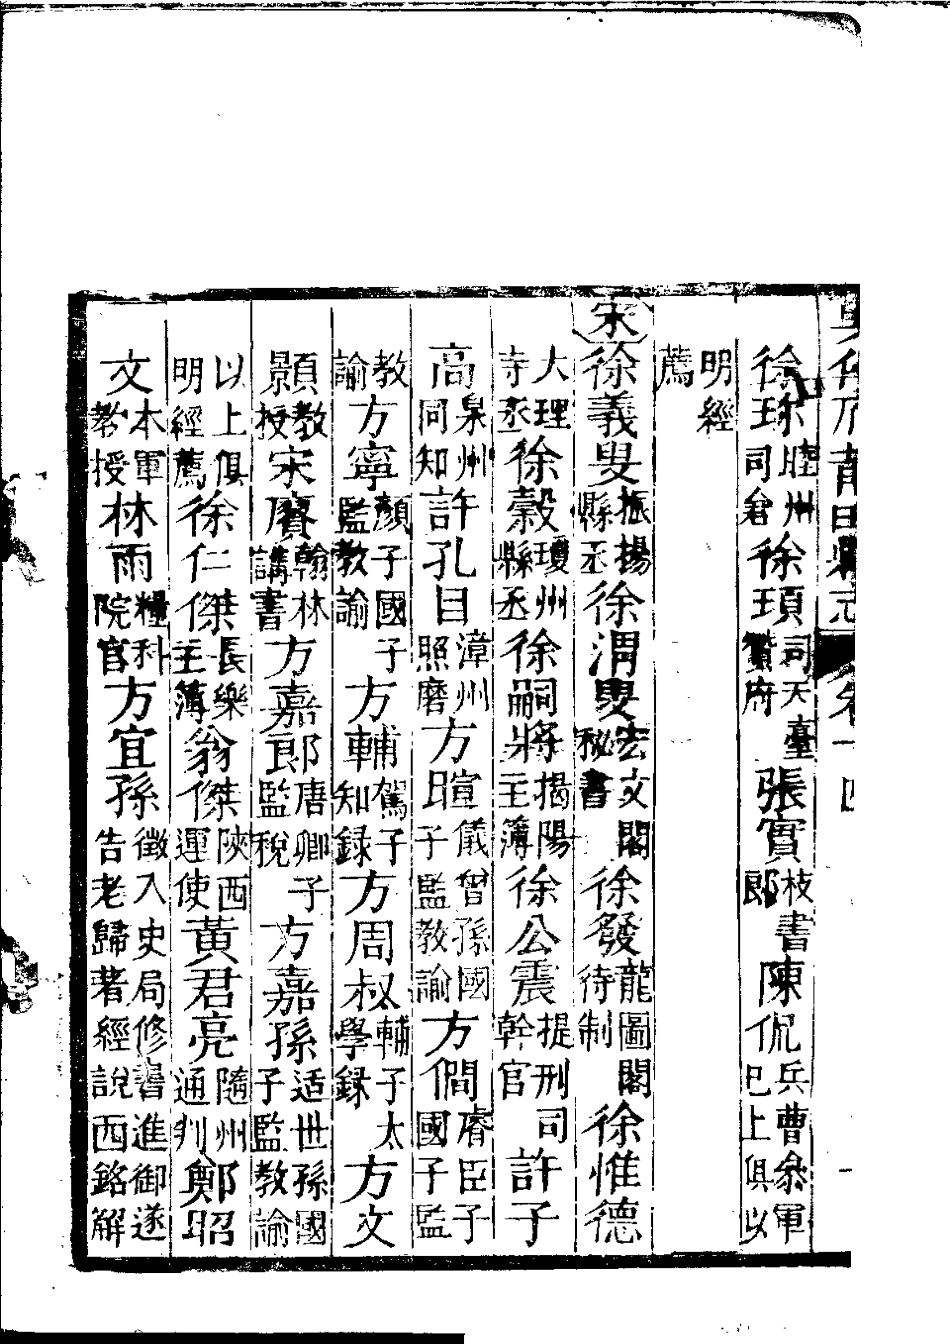 莆田縣志
徐 睦州司 徐頊司天臺贊府 張實校書郎 陳侃兵曹參軍已上俱以
明經薦
宋 徐義叟振揚縣丞 徐渭叟宏文閣秘書 徐發龍圖閣待制 徐惟德
大理寺丞 徐穀瓊州縣丞 徐嗣將揭陽主簿 徐公震提刑司幹官 許子
高泉州同知 許孔目漳州照磨 方暄儀曾孫國子監教諭 方僩膺臣子國子監
教諭 方寧顏子國子監教諭 方輔駕子知録 方周叔輔子太學録 方文
顥教授 宋膺翰林講書 方嘉郎唐卿子監稅 方嘉孫适世孫國子監教諭
以上俱明經薦 徐仁傑長樂主簿 翁傑陝西運使 黃君亮隨州通判 鄭昭
文本軍教授 林雨糧科院官 方宜孫徵入史局修書進御遂告老歸著經說西銘解